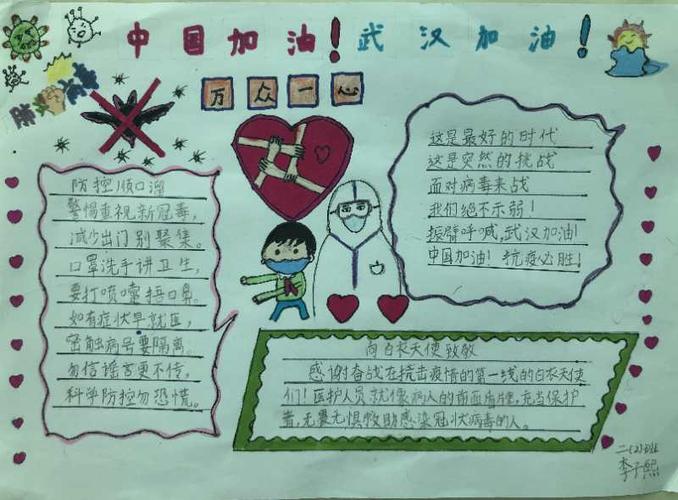 中国加油！武汉加油！
万众一心
防控顺口溜
警惕重视新冠毒，
减少出门别聚集。
口罩洗手讲卫生，
要打喷嚏捂口鼻。
如有症状早就医，
密触病号要隔离。
勿信谣言更不传，
科学防控勿恐慌。
这是最好的时代
这是突然的挑战
面对病毒来战
我们绝不示弱！
振臂呼喊，武汉加油！
中国加油！抗疫必胜！
向白衣天使致敬
感谢奋战在抗击疫情的第一线的白衣天使
们！医护人员就像病人的
充当保护
者，无畏无惧救助感染冠状病毒的人。
二（2）班
李子熙